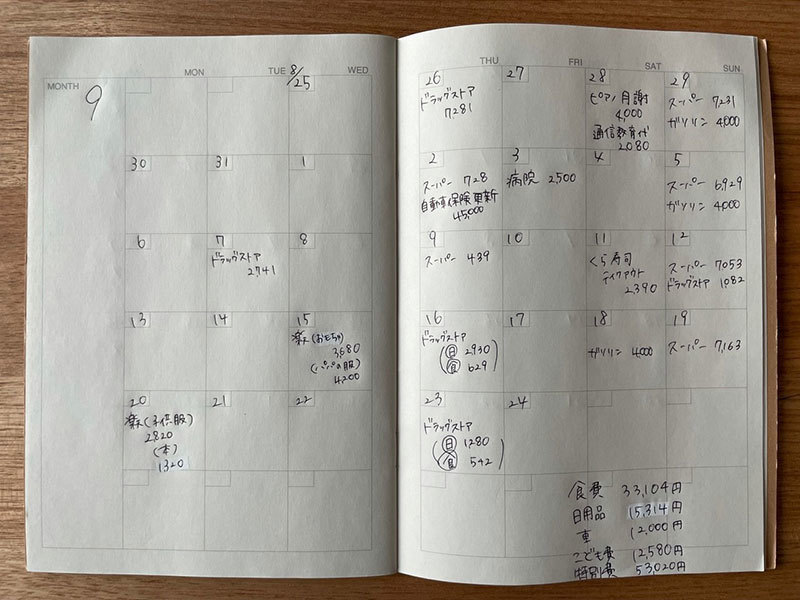 MONTH
9
MON
TUE
WED
8/25
THU
FRI
SAT
SUN
26
ドラッグストア
7281
27
28
ピアノ月謝
4,000
通信教育代
2,080
29
スーパー 7231
ガソリン 4,000
30
31
1
2
スーパー 728
自動車保険更新
45,000
3
病院 2,500
4
5
スーパー 6,929
ガソリン 4,000
6
7
ドラッグストア
2,741
8
9
スーパー 439
10
11
くら寿司
テイクアウト
2,390
12
スーパー 7053
ドラッグストア 1082
13
14
15
楽天(おもちゃ)
3,680
(パパの服)
4,200
16
ドラッグストア
(日 2930
食 629)
17
18
ガソリン 4,000
19
スーパー 7,163
20
楽天(子供服)
2,820
(本)
1320
21
22
23
ドラッグストア
(日 1280
食 542)
24
食費 33,104円
日用品 15,314円
車 12,000円
こども費 12,580円
特別費 53,020円